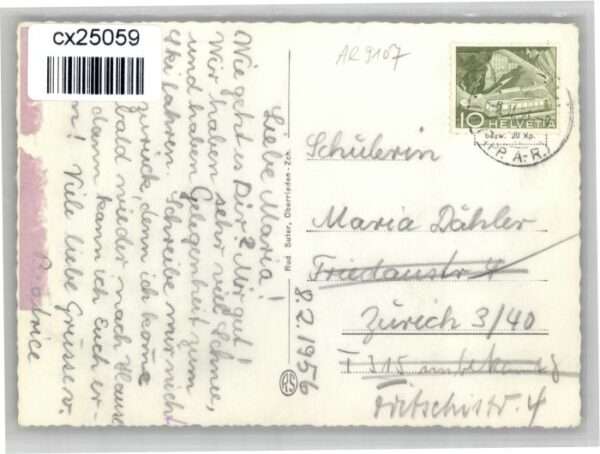 cx25059
AR 9107
10 HELVETIA
bezw. 20 Rp.
PP. A.-R.
Liebe Maria!
Wie geht es Dir? Mir gut!
Wir haben sehr viel Schnee,
und haben Gelegenheit zum
Ski fahren. Schreibe mir nicht
zurück, denn ich komme
bald wieder nach Hause
dann kann ich Euch er-
n! Viele liebe Grüsse v.
Beatrice
Rud Suter, Oberrieden-Zch.
8.2.1956
RS
Schülerin
Maria Dähler
Friedaustr 4
Zürich 3/40
I 315 unbekannt
Fritschistr. 4